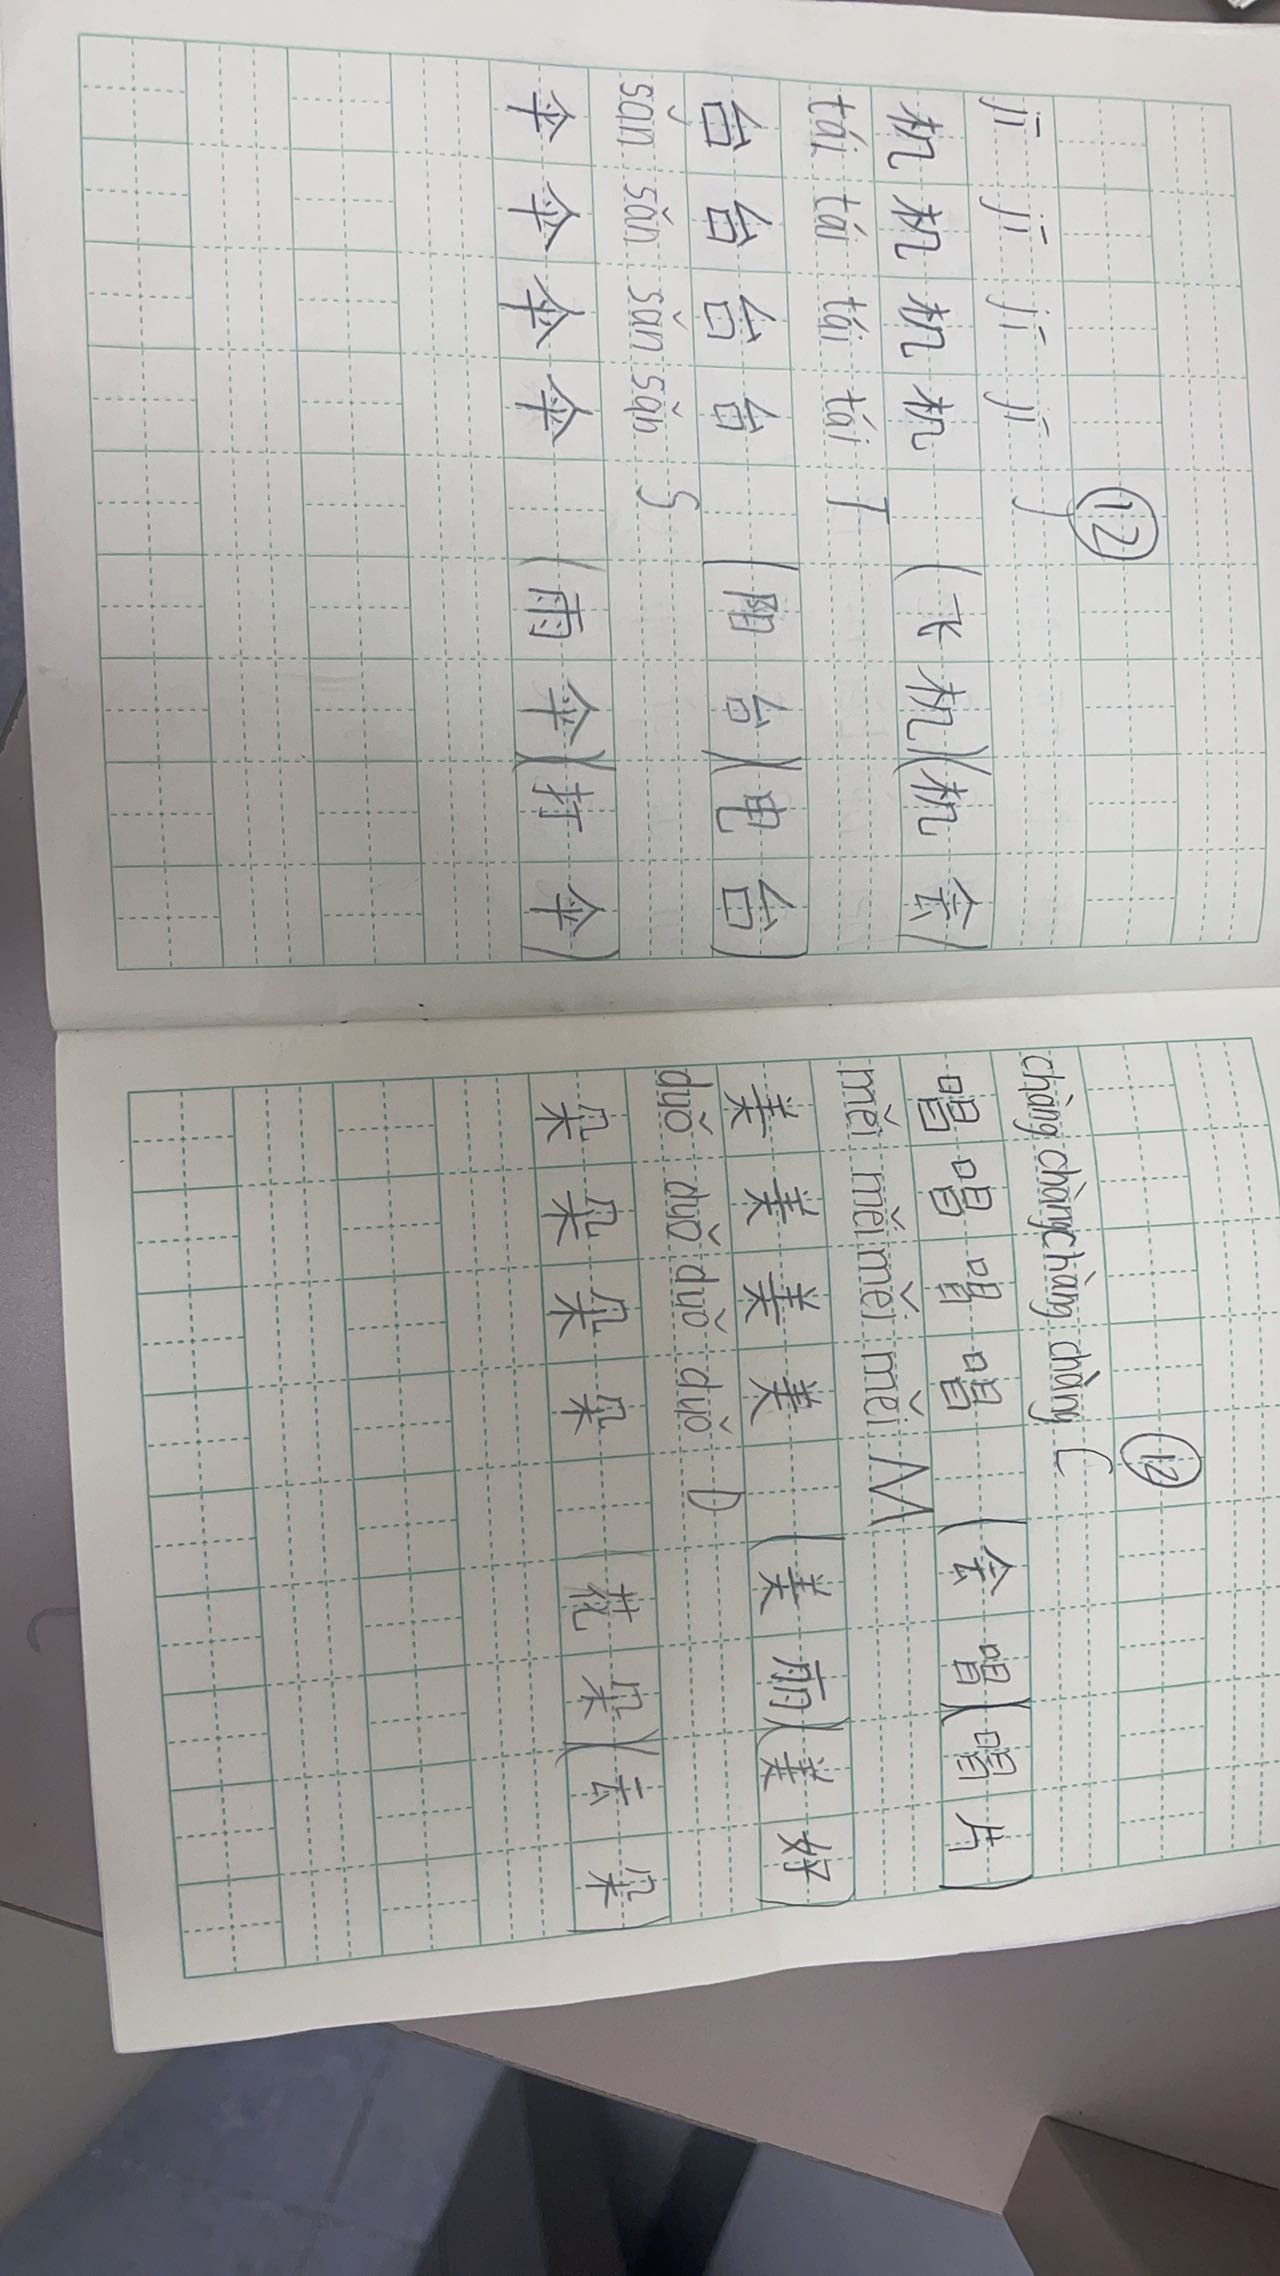 ⑫
jī jī jī jī J
机 机 机 机 (飞机)(机会)
tái tái tái tái T
台 台 台 台 (阳台)(电台)
sǎn sǎn sǎn sǎn S
伞 伞 伞 伞 (雨伞)(打伞)
⑫
chàng chàng chàng chàng C
唱 唱 唱 唱 (会唱)(唱片)
měi měi měi měi M
美 美 美 美 (美丽)(美好)
duǒ duǒ duǒ duǒ D
朵 朵 朵 朵 (花朵)(云朵)